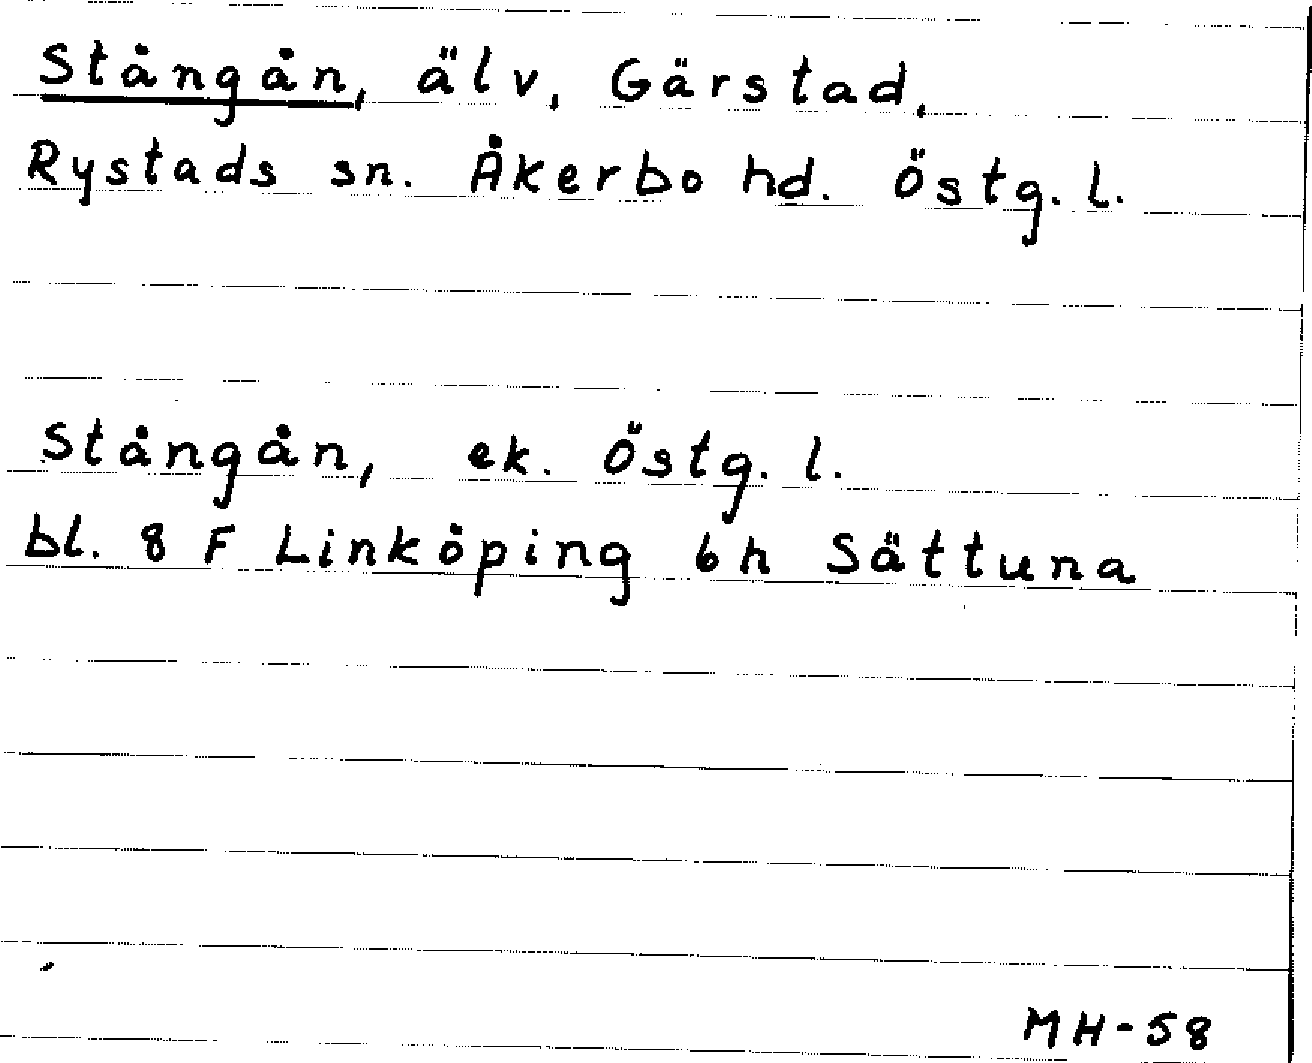 Stångån, älv, Gärstad,
Rystads sn. Åkerbo hd. Östg. l.
Stångån, ek. Östg. l.
bl. 8 F Linköping 6h Sättuna
MH-58